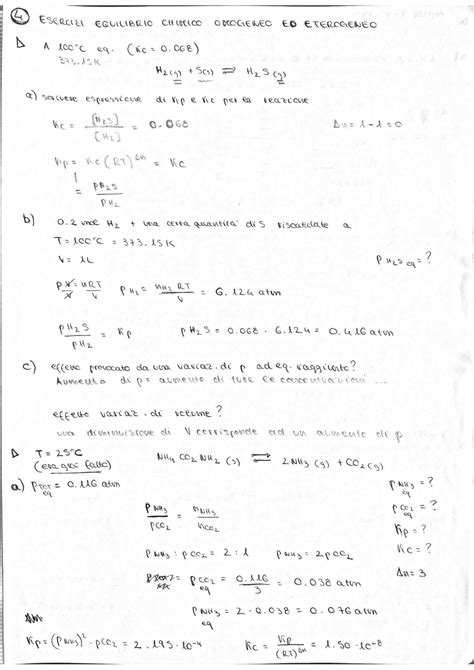 4 ESERCIZI EQUILIBRIO CHIMICO OMOGENEO ED ETEROGENEO
A 100°C eq. (Kc = 0.068)
373.15K
H2(g) + S(s) ⇌ H2S(g)
a) scrivere espressione di Kp e Kc per la reazione
Kc = [H2S] / [H2] = 0.068 Δn = 1 - 1 = 0
Kp = Kc (RT)^Δn = Kc
= pH2S / pH2
b) 0.2 mol H2 + una certa quantità di S riscaldate a
T = 100°C = 373.15K
V = 1L pH2S eq = ?
pV = nRT pH2 = nH2 RT / V = 6.124 atm
pH2S / pH2 = Kp pH2S = 0.068 · 6.124 = 0.416 atm
c) effetto provocato da una variaz. di p ad eq. raggiunto?
Aumento di p = aumento di tutte le concentrazioni ...
effetto variaz. di volume?
una diminuzione di V corrisponde ad un aumento di p
T = 25°C NH4CO2NH2 (s) ⇌ 2NH3 (g) + CO2 (g)
(era già fatto)
a) pTOT eq = 0.116 atm pNH3 eq = ?
pNH3 / pCO2 = nNH3 / nCO2 pCO2 eq = ?
Kp = ?
pNH3 : pCO2 = 2 : 1 pNH3 = 2pCO2 Kc = ?
pCO2 eq = 0.116 / 3 = 0.038 atm Δn = 3
pNH3 eq = 2 · 0.038 = 0.076 atm
Kp = (pNH3)² · pCO2 = 2.195·10⁻⁴ Kc = Kp / (RT)^Δn = 1.50·10⁻⁸